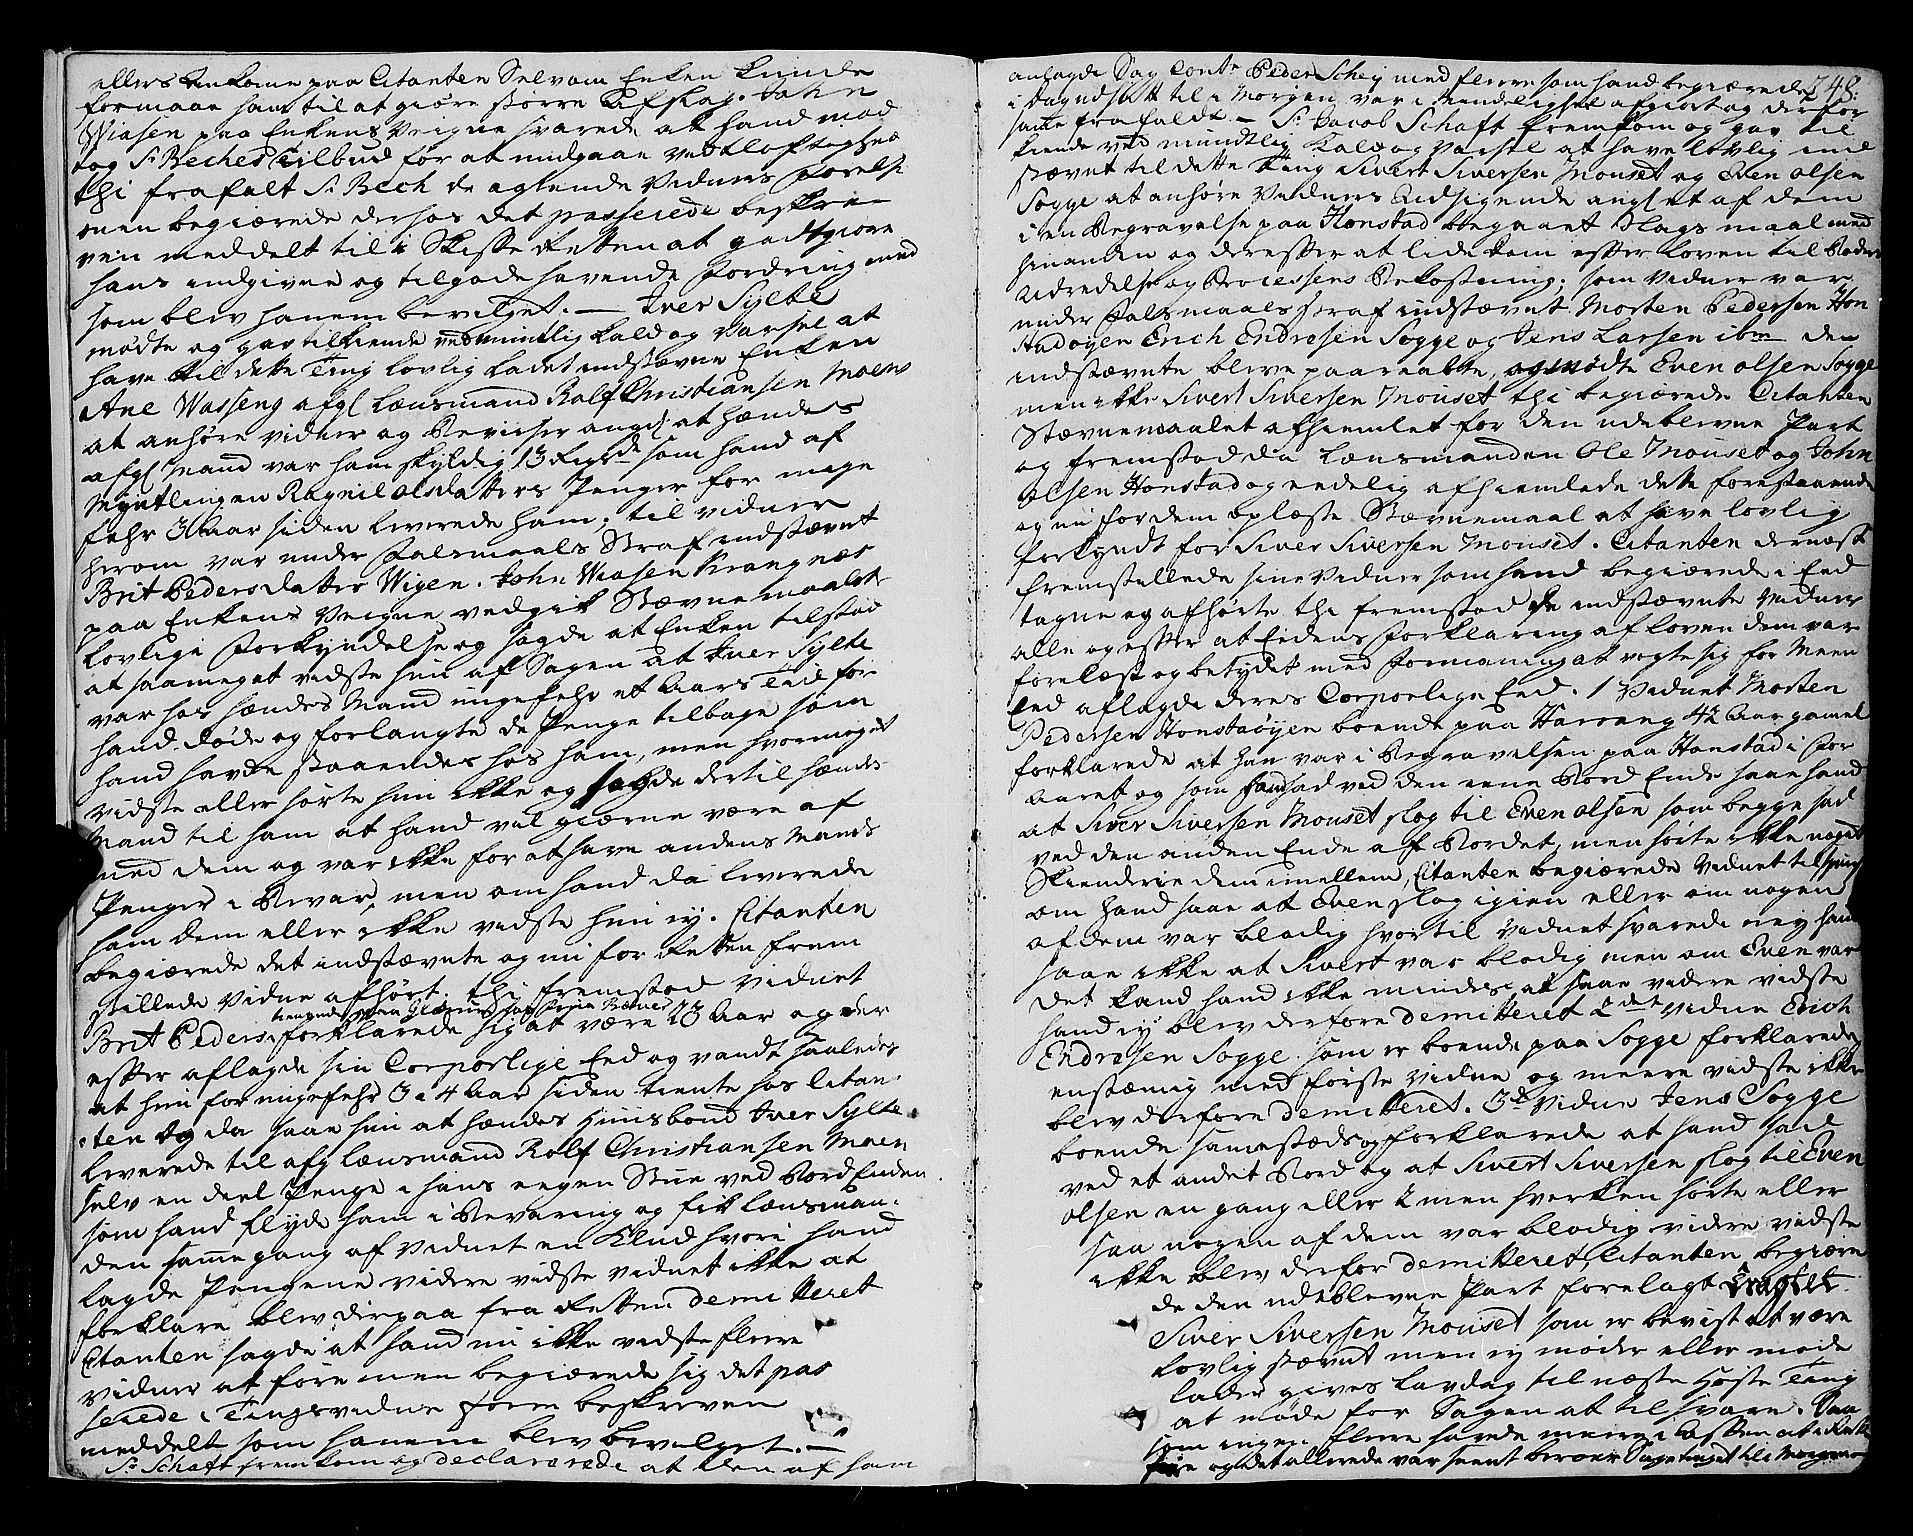 ellers ankome paa Citanten Selv om Enken kunde
formaae ham til at giøre større Afslag. John
Wiasen paa Enkens Veigne svarede at hand mod
tog Sr. Beches Tilbud for at undgaae vedtløftighed
thi frafalt Sr. Bech de øglende Vidners Førelse
men begiærede derhos det passerede beskre-
ven meddelt til i Skifte Retten at godtgiøre
hans indgivne og tilgode havende Fordring med
som blev hanem bevilget. — Iver Sylte
mødte og gav tilkiende ved mundlig kald og Varsel at
have til dette Ting lovlig ladet indstævne Enken
Ane Wasseng afgl Lænsmand Rolf Christiansen Moens
at anhøre vidner og Beviiser angl. at hændes
afgl Mand var ham skyldig 13 Rigsdr som hand af
Myntlingen Ragnil olsdatters Penger for unge
fehr 3 Aar siden leverede ham; til vidner
herom var under Falsmaals Straf indstævnt
Brit Pedersdatter Wigen. John Wiasen Krangnæs
paa Enkens Veigne vedgik Stævnemaalets
lovlige Forkyndelse og sagde at Enken tilstod
at saameget vidste hun af Sagen at Iver Sylte
var hos hændes Mand ungefehr et Aars Tiid før
hand døde og forlangte de Penge tilbage som
hand havde staaendes hos ham, men hvormeget
vidste eller hørte hun ikke og sagde dertil hændes
Mand til ham at hand vel giærne være af
med dem og var ikke for at have andens Mands
Penger i Bevar, men om hand da leverede
ham dem eller ikke vidste hun ey. Citanten
begiærede det indstævnte og nu for Retten frem
stillede Vidne afhørt. thi fremstod Vidnet
Brit Peders. forklarede sig at være 23 Aar og der
efter aflagde sin Corporlige Eed og vandt saaledes
at hun for ungefehr 3 a 4 Aar siden tiente hos Citan-
ten og da saae hun at hændes Huusbond Iver Sylte
leverede til afg Lænsmand Rolf Christiansen Moen
selv en deel Penge i hans eegen Stue ved Bord Enden
som hand flyde ham i Bevaring og fik Lænsman-
den samme gang af Vidnet en Klud hvori hand
lagde Pengene videre vidste Vidnet ikke at
forklare blev derpaa fra Retten demitteret
Citanten sagde at hand nu ikke vidste fleere
vidner at føre men begiærede sig det pas
serede i Tingsvidne form beskreven
meddelt som hanem blev bevilget. —
Sr. Schaft fremkom og declarerede at den af ham
anlagde Sag Contr. Peder Schey med fleere som hand begiærede 248.
i Dag udsatt til i Morgen var i Mindelighed afgiort og derfor
samme frafaldt — Sr. Jacob Schaft fremkom og gav til
kiende ved mundtlig Kald og Varsel at have lovlig ind
stævnt til dette Ting Sivert Siversen Mouset og Even olsen
Sogge at anhøre Vidners Udsigende angl. et af dem
i en Begravelse paa Honstad begaaet Slagsmaal med
hinanden og derefter at lide dom efter Loven til Bøders
Udredelse og Processens Bekostning; som Vidner var
under Falsmaals straf indstævnt Morten Pedersen Hon
stadøyen Erich Endresen Sogge og Jens Larsen ibm den
indstævnte bleve paaraabte, og mødte Even olsen Sogge
men ikke Sivert Siversen Mouset thi begiærede Citanten
Stævnemaalet afhiemlet for den udeblevne Part
og fremstod da Lænsmanden Ole Mouset og John
olsen Honstad og eedelig afhiemlede dette forestaaende
og nu for dem oplæste Stævnemaal at have lovlig
Forkyndt for Siver Siversen Mouset. Citanten dernæst
fremstillede sine Vidner som hand begiærede i Eed
tagne og afhørte thi fremstod de indstævnte Vidner
alle og efter at Eedens Forklaring af Loven dem var
forelæst og betydet med Formaning at vogte sig for Meen
Eed aflagde deres Corporlige Eed. 1 Vidnet Morten
Pedersen Honstadøyen boende paa Harrang 42 Aar gamel
forklarede at han var i Begravelsen paa Honstad i For
aaret og som hand sad ved den eene Bord Ende saae hand
at Siver Siversen Mouset slog til Even olsen som begge sad
ved den anden Ende af Bordet, men hørte ikke noget
Skienderie dem imellem, Citanten begiærede Vidnet tilspurgt
om hand saae at Even slog igien eller om nogen
af dem var blodig hvortil Vidnet svarede ney hand
saae ikke at Sivert var blodig men om Even var
det kand hand ikke mindes at saae videre vidste
hand ey blev derfore demitteret 2det Vidne Erich
Endresen Sogge som er boende paa Sogge forklarede
enstæmig med første Vidne og meere vidste ikke
blev derfore demitteret. 3de Vidne Jens Sogge
boende sammestæds og forklarede at hand sad
ved et andet Bord og at Sivert Siversen slog til Even
olsen en gang eller 2 men hverken hørte eller
saa nogen af dem var blodig videre vidste
ikke blev derfor demitteret, Citanten begiære
de den udeblevne Part forelagt
Siver Siversen Mouset som er beviist at være
lovlig stævnt men ey møder eller møde
lader gives Lavdag til næste Høste Ting
at møde for Sagen at tilsvare. Saa
som ingen fleere havde meere i Retten at i Rette
føre og det allerede var seent beroer Sagetinget til i Morgen